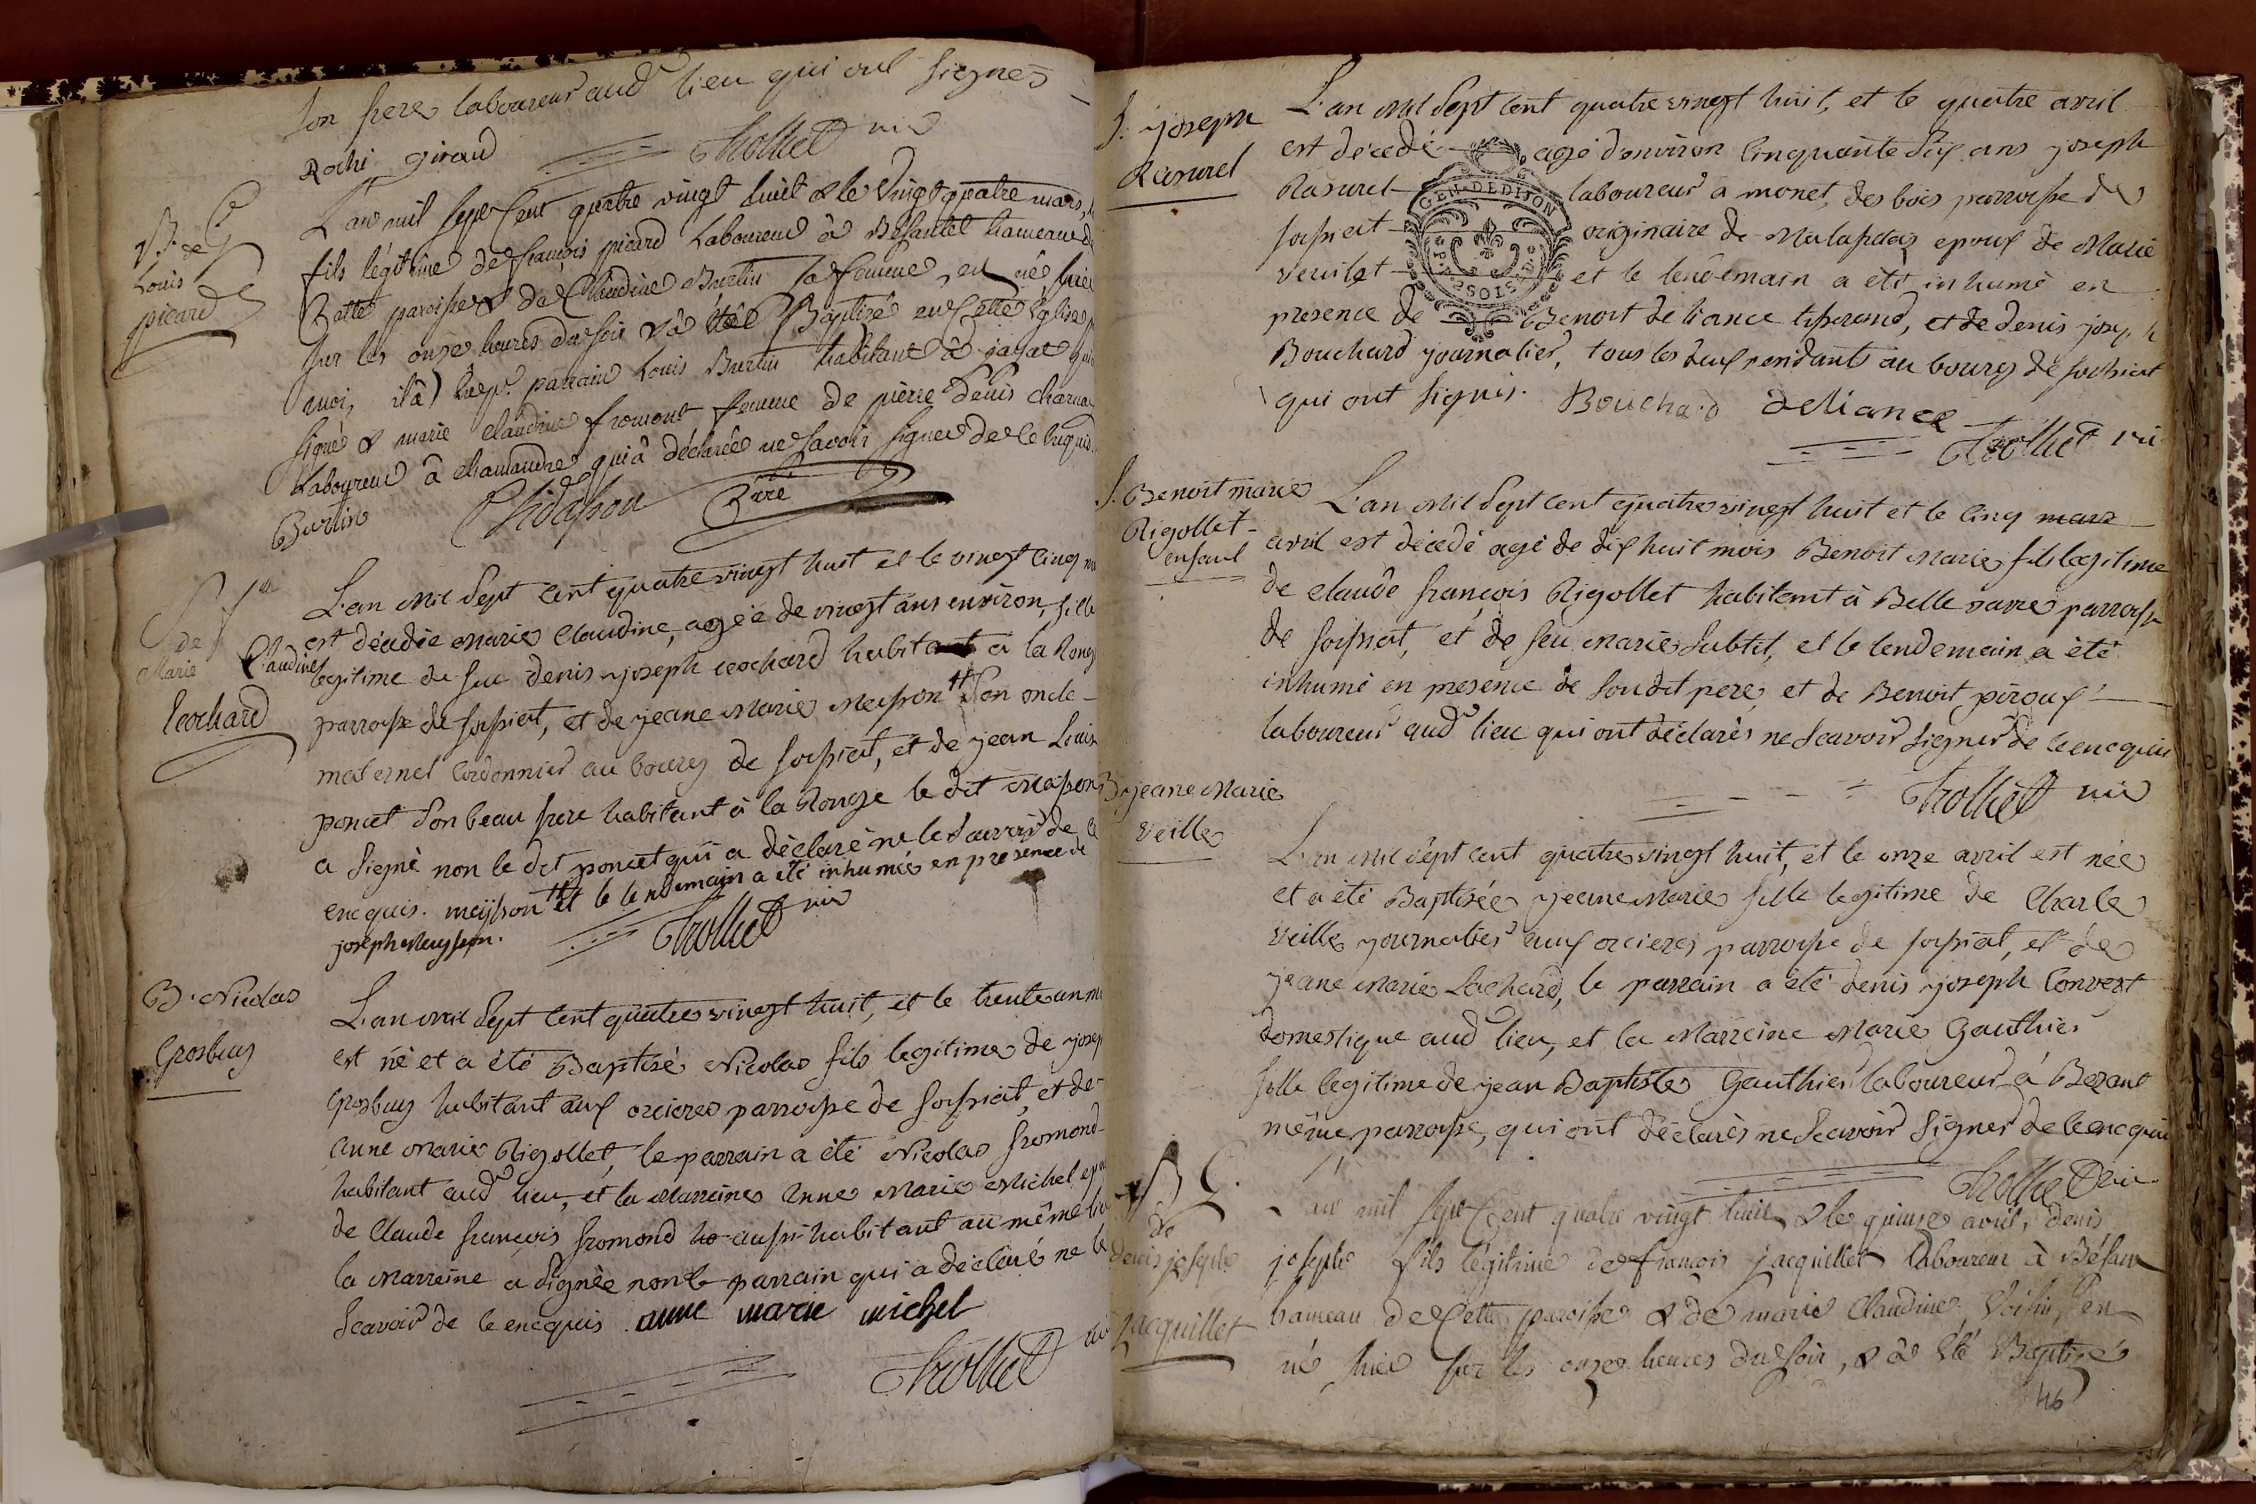 son frere laboureur aud lieu qui ont signes
Rochi giraud Trolliet vic
B. de
Louis
picard
L'an mil sept Cent quatre vingt huit & le Vingt quatre mars,
fils légitime de francois picard Laboureur à Besantet hameau de
Cette paroisse & de Claudine Burtin sa femme, est né, hier
sur les onze heures du soir & à été Baptisé en Cette église
moi, il à eu pr. parrain Louis Burtin habitant à jayat
signé & marie claudine fromont femme de pierre denis charna
Laboureur à chamandre qui à déclarée ne savoir signer de Ce Enquis
Burtin Chidasson Vire
Sre
de
Marie Claudine
cochard
L'an mil Sept cent quatre vingt huit et le vingt cinq
est décédée Marie Claudine, agée de vingt ans environ, fille
legitime de feu denis joseph cochard habitant à la Rong
parroisse de foissiat, et de jeane Marie Meisson # Son oncle -
maternel Cordonnier au bourg de foissiat, et de jean Louis
poncet Son beau frere habitant à la Ronge le dit Maison
a Signé non le dit poncet qui a déclaré ne le Sauvoir de ce
enequis. meysson # et le lendemain a été inhumée en presence de
joseph Meysson. Trolliet vic
B. Nicolas
Grosbuy
L'an mil Sept cent quatre vingt huit, et le trente un
est né et a été Baptisé Nicolas fils legitime de josep
Grosbuy habitant aux orcieres parroisse de foissiat, et de
Anne Marie Rigollet, le parrain a été Nicolas fromond
habitant aud lieu, et la Marreine Anne Marie Michel
de Claude françois fromond aussi habitant au même
la Marreine a Signée non le parrain qui a déclaré ne le
Scavoir de ce enequis anne marie michel
Trolliet vic
S. joseph
Rasurel
L'an mil Sept cent quatre vingt huit, et le quatre avril
est décedé agé d'environ Cinquante dix ans joseph
Rasurel laboureur à monet, des bois parroisse de
foissiat originaire de Malafretaz epoux de Marie
Veuilet et le lendemain a été inhumé en
GEN. DE DIJON
presence de Benoit deliance tisserand, et de denis joseph
Bouchard journalier, tous les deux residants au bourg de foissiat
qui ont signés. Bouchard deliance
Trolliet vic
S. Benoit marie
Rigollet
enfant
L'an Mil Sept cent quatre vingt huit et le Cinq mars
avril est décedé agé de dix huit mois Benoit Marie fils legitime
de Claude françois Rigollet habitant à Belle vavre parroisse
de foissiat, et de feu Marie Subtil, et le lendemain a été
inhumé en presence de Son dit pere, et de Benoit piroux
laboureur aud lieu qui ont déclarés ne Scavoir Signer de ce enequis
Trolliet vic
B jeane Marie
Veille
L'an Mil Sept cent quatre vingt huit, et le onze avril est née
et a été Baptisée jeane Marie fille legitime de Charle
Veille journalier aux orcieres parroisse de foissiat, et de
jeane Marie Lachard, le parrain a été denis joseph Convert
domestique aud lieu, et la Marreine Marie Gauthier
fille legitime de jean Baptiste Gauthier laboureur à Bezant
même parroisse, qui ont déclarés ne Scavoir Signer de ce enequis
Trolliet vic
B
de
denis joseph
jacquillet
L'an mil sept Cent quatre vingt huit & le quinze avril, denis
joseph fils légitime de francois jacquillet laboureur à Bésan
hameau de Cette paroisse & de marie Claudine Voisin, est
né, hier sur les onze heures du soir, & à été Baptisé
46